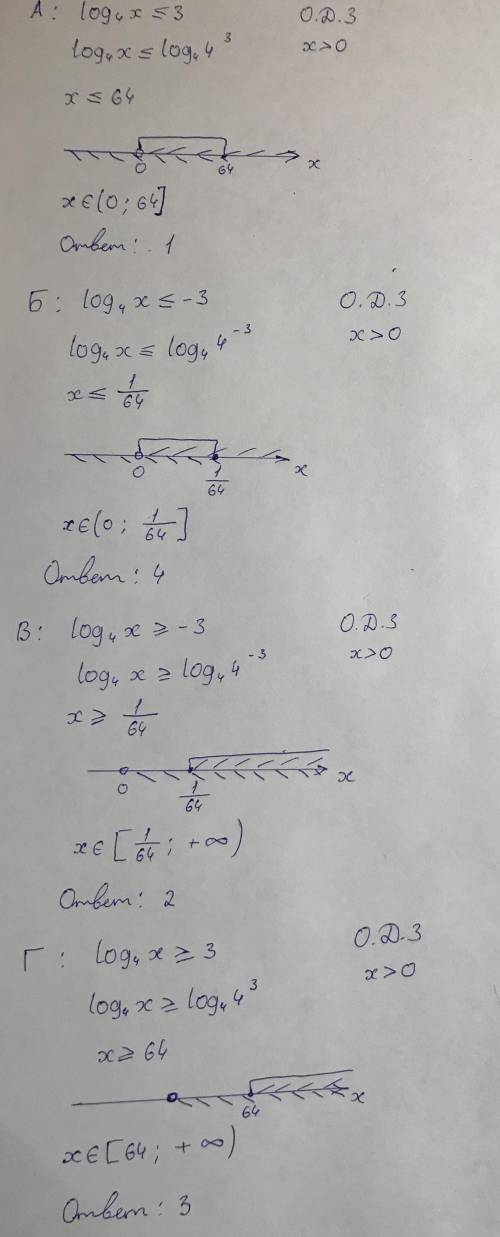 А: log₄x ≤ 3 О.Д.З
log₄x ≤ log₄4³ x>0
x ≤ 64
0 64 x
x∈(0; 64]
Ответ: 1
Б: log₄x ≤ -3 О.Д.З
log₄x ≤ log₄4⁻³ x>0
x ≤ 1/64
0 1/64 x
x∈(0; 1/64]
Ответ: 4
В: log₄x ≥ -3 О.Д.З
log₄x ≥ log₄4⁻³ x>0
x ≥ 1/64
0 1/64 x
x∈[1/64; +∞)
Ответ: 2
Г: log₄x ≥ 3 О.Д.З
log₄x ≥ log₄4³ x>0
x ≥ 64
64 x
x∈[64; +∞)
Ответ: 3